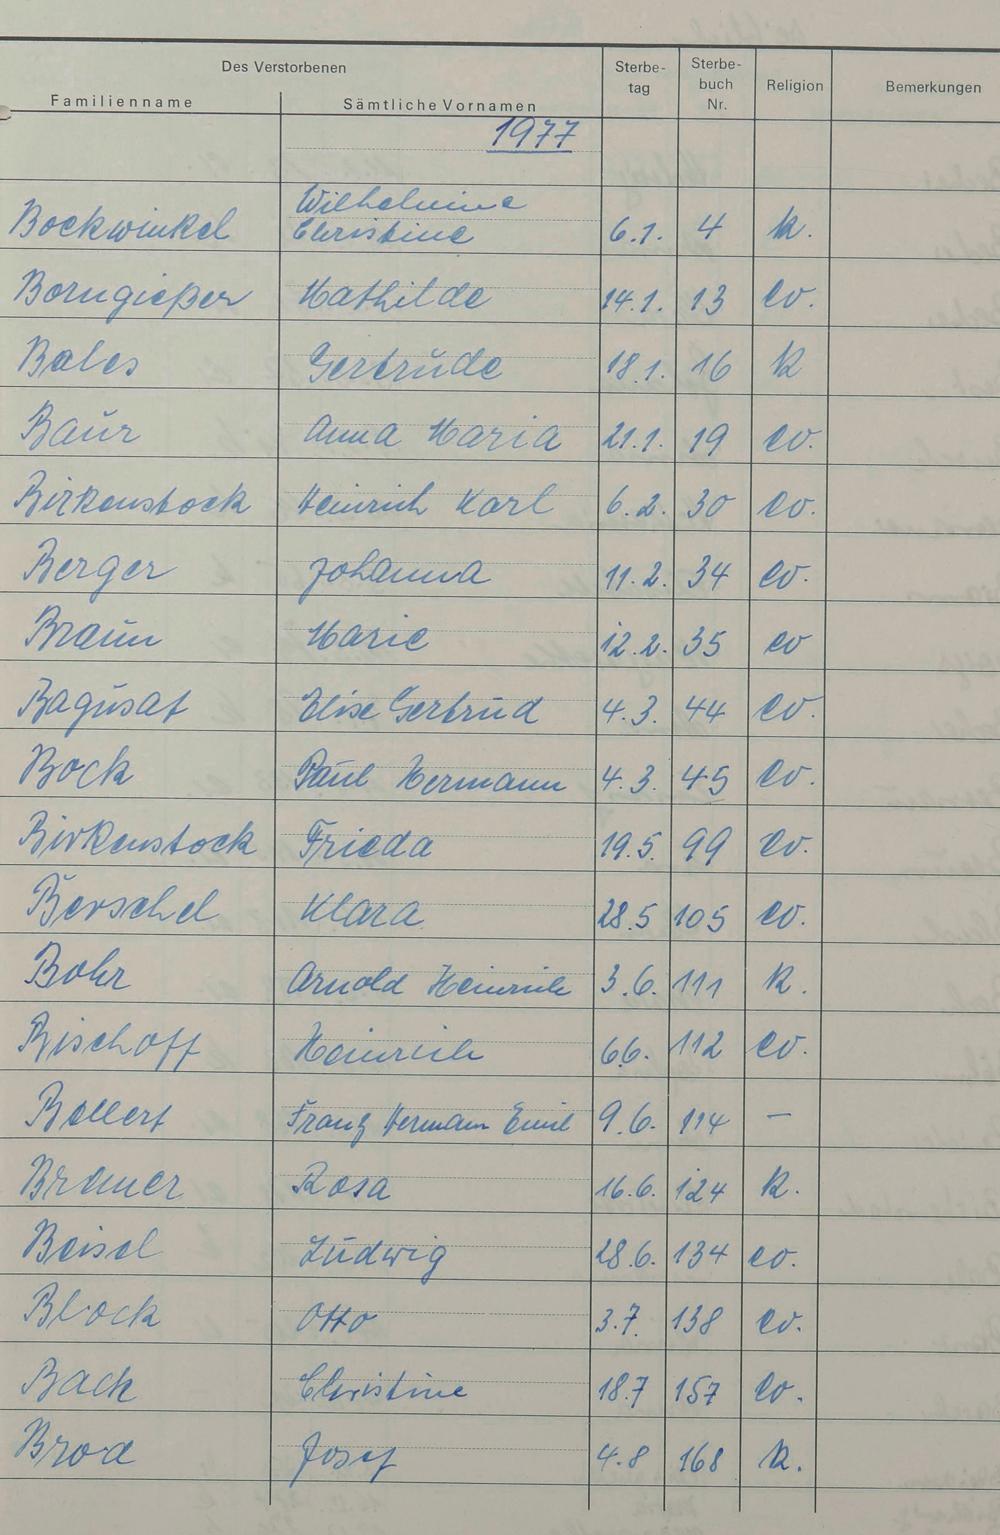 Des Verstorbenen Sterbe- Sterbe- Religion Bemerkungen
Familienname Sämtliche Vornamen tag buch Nr.
1977
Bockwinkel Wilhelmine Christine 6.1. 4 k.
Borngießer Mathilde 14.1. 13 ev.
Bales Gertrude 18.1. 16 k
Baur Anna Maria 21.1. 19 ev.
Birkenstock Heinrich Karl 6.2. 30 ev.
Berger Johanna 11.2. 34 ev.
Braun Marie 12.2. 35 ev
Bagusat Elise Gertrud 4.3. 44 ev.
Bock Paul Hermann 4.3. 45 ev.
Birkenstock Frieda 19.5. 99 ev.
Berschel Klara 28.5 105 ev.
Bohr Arnold Heinrich 3.6. 111 k.
Bischoff Heinrich 6.6. 112 ev.
Bellert Franz Hermann Emil 9.6. 114 –
Bramer Rosa 16.6. 124 k.
Beisel Ludwig 28.6. 134 ev.
Block Otto 3.7. 138 ev.
Back Christine 18.7 157 ev.
Brod Josef 4.8 168 k.